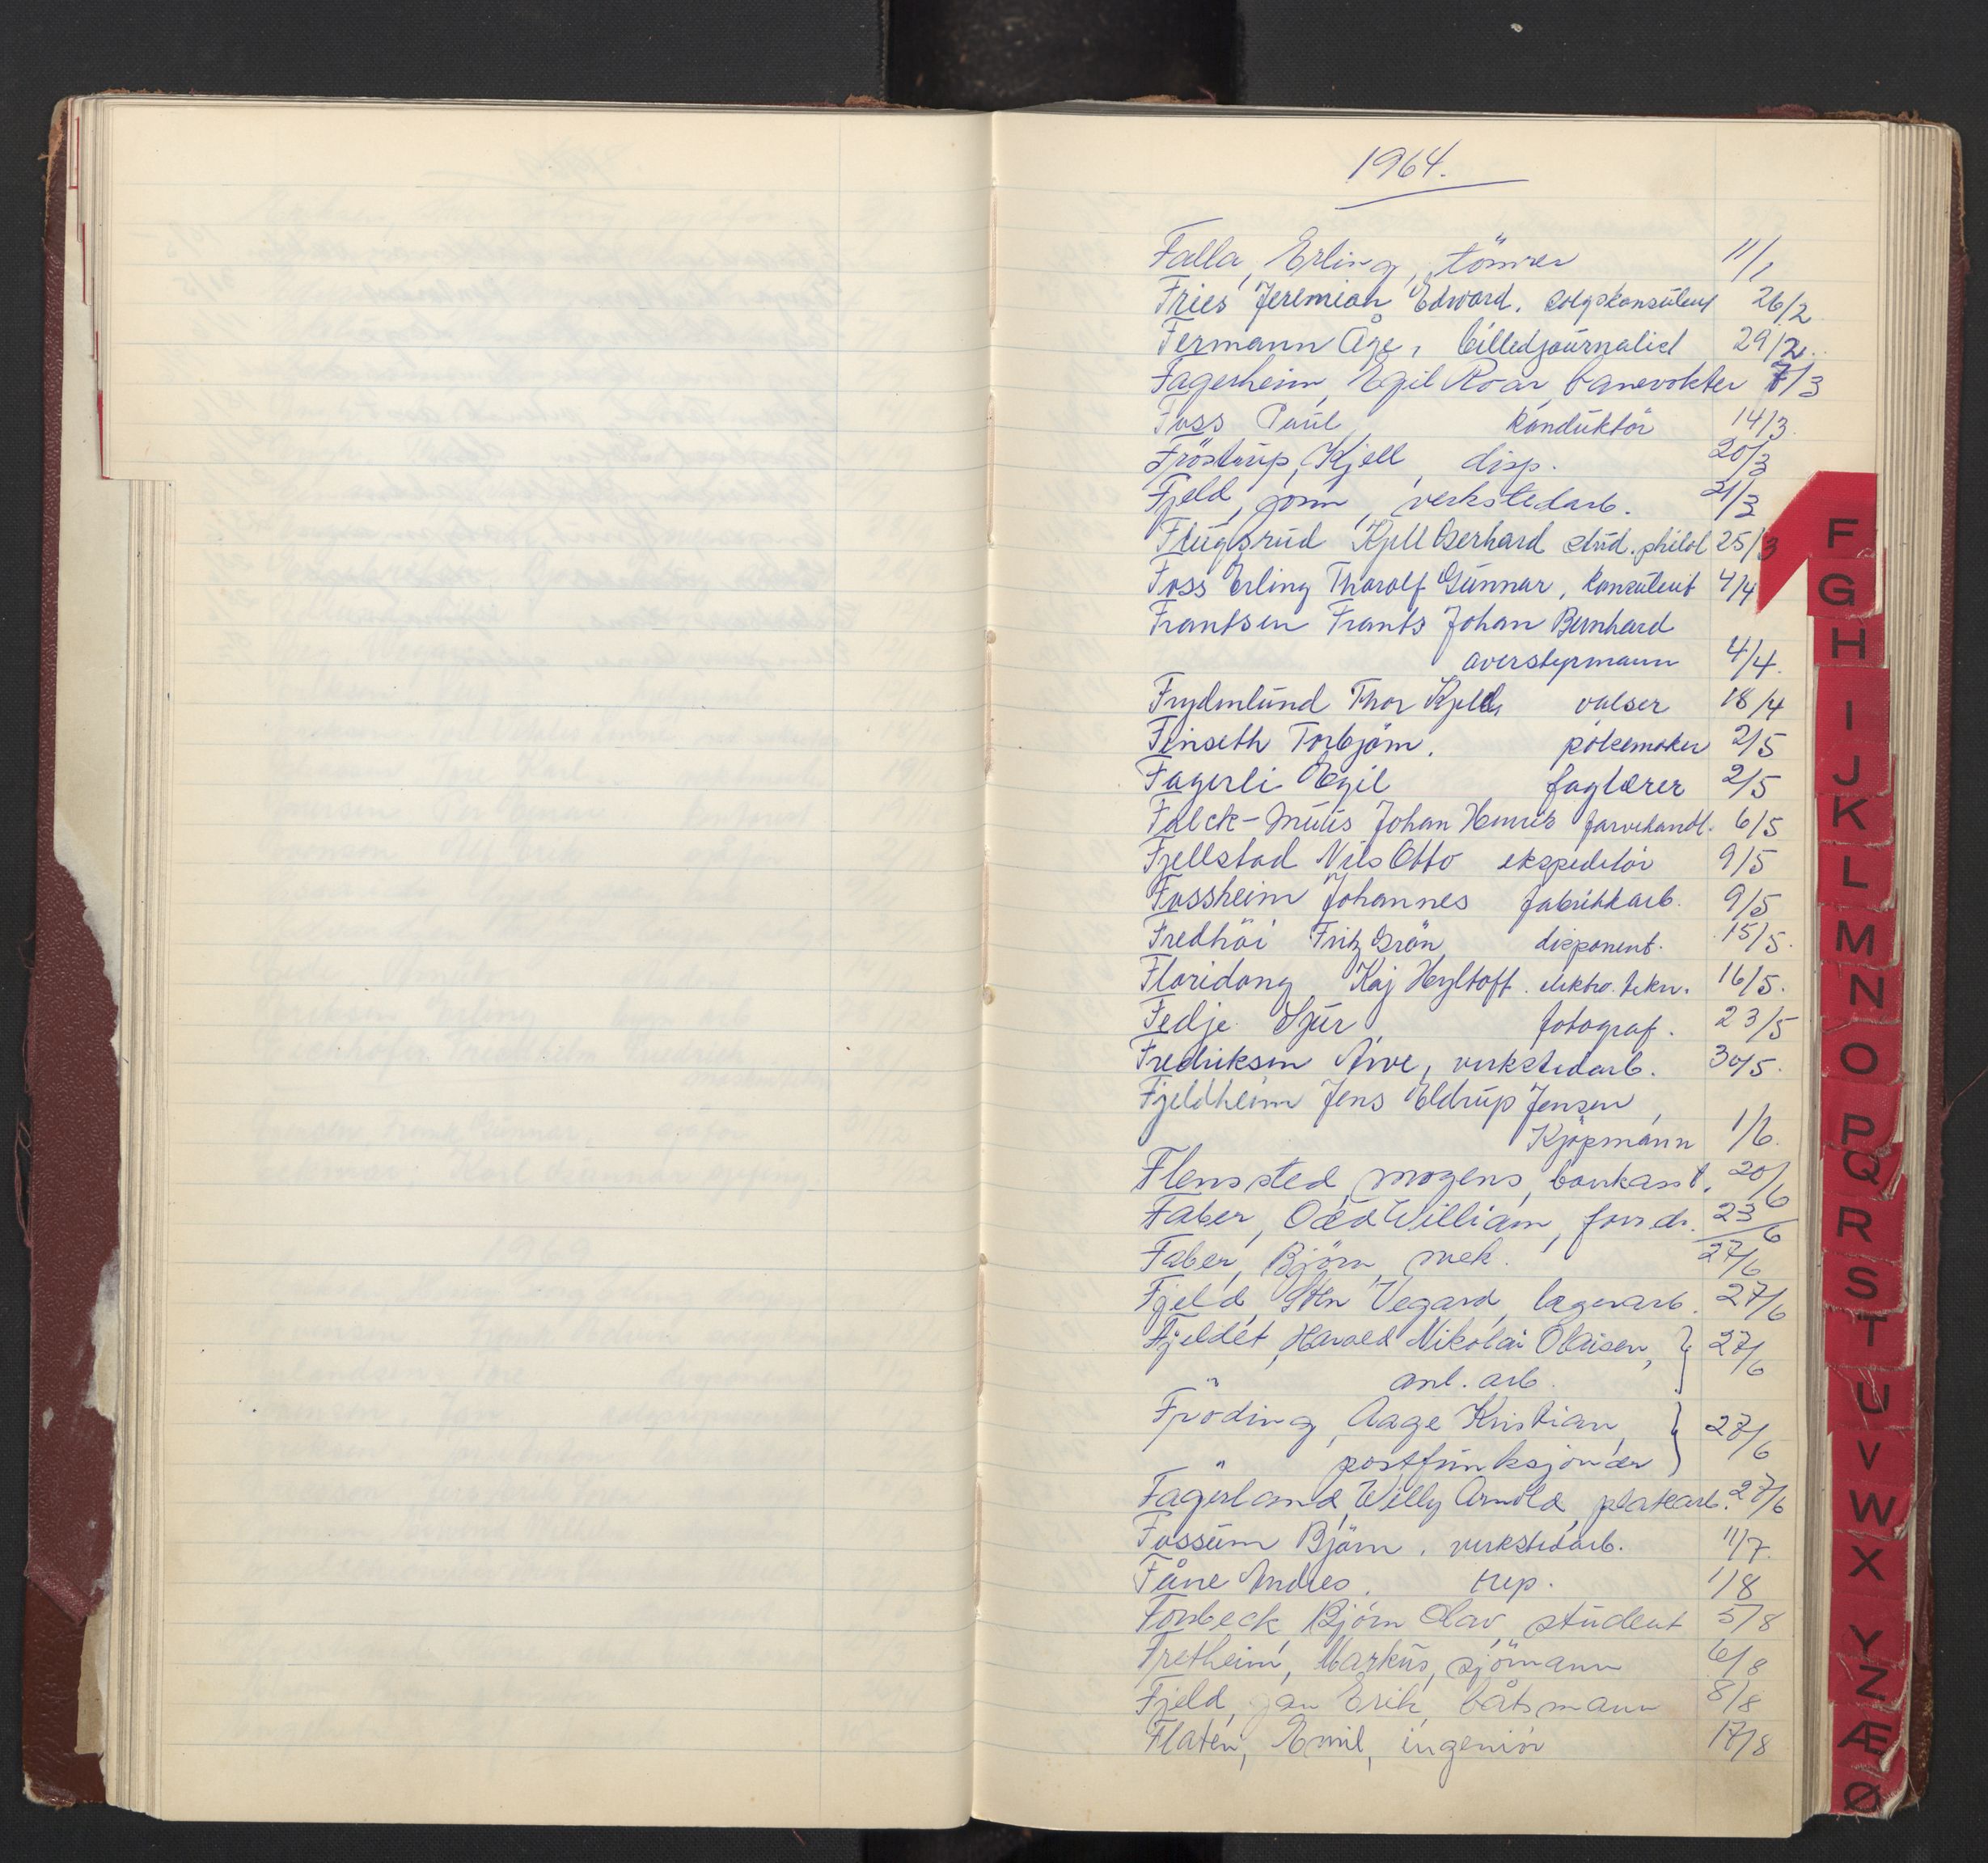 1964.
Falla, Erling, tömrer 11/1
Fries Jeremiah Edward. salgskonsulent 26/2
Fermann Åge, billedjournalist 29/2.
Fagerheim, Egil Roar, banevokter 7/3
Foss Paul konduktör 14/3.
Fröstrup, Kjell, disp. 20/3
Fjeld, Jonn, verkstedarb. 21/3
Flugsrud Kjell Gerhard stud. philol 25/3
Foss Erling Thorolf Gunnar, konsulent 4/4
Frantsen Frants Johan Bernhard
overstyrmann 4/4.
Frydenlund Thor Kjell, valser 18/4
Finseth Torbjörn. pölsemaker 2/5
Fagerli Egil faglærer 2/5
Falck-Muus Johan Henrik farvehandl. 6/5
Fjellstad Nils Otto ekspeditör 9/5
Fossheim Johannes fabrikkarb. 9/5
Fredhöi Fritz Grön disponent. 15/5.
Floridong Kaj Heyltoft. elektro.tekn. 16/5.
Fedje Sjur, fotograf. 23/5
Fredriksen Arve, verkstedarb. 30/5.
Fjeldheim Jens Eldrup Jensen,
Kjöpmann 1/6.
Flensted, Mogens, bankass. 20/6
Faber, Odd William, forr.dr. 23/6
Faber, Björn, mek. 27/6
Fjeld, Sten Vegard, lagerarb. 27/6
Fjeldet, Harald Nikolai Olaisen, } 27/6
" anl. arb.
Fröding, Aage Kristian, } 27/6
" postfunksjonær
Fagerland, Willy Arnold, platearb. 27/6
Fossum Björn, verkstedarb. 11/7.
Fåne Andres. rep. 1/8
Fonbeck Björn Olav, student 5/8
Fretheim, Markus, sjömann 6/8
Fjeld, Jan Erik, båtsmann 8/8
Flaten, Emil, ingeniör 17/8
F
G
H
I
J
K
L
M
N
O
P
Q
R
S
T
U
V
W
X
Y
Z
Æ
Ø